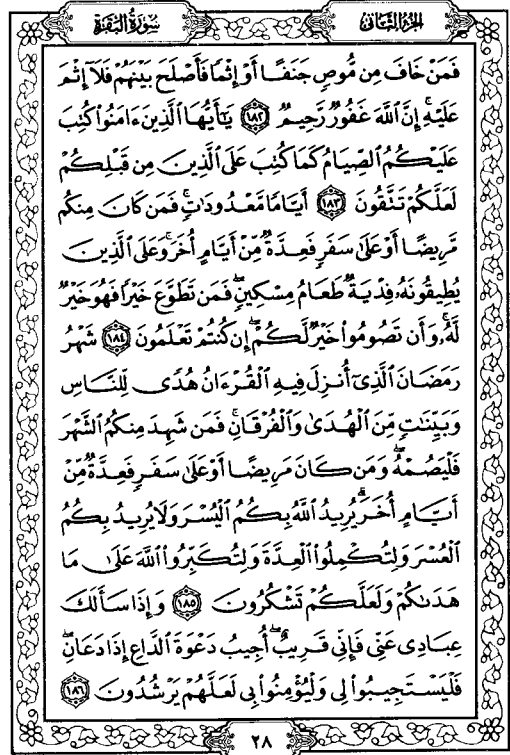 الجزء الثاني سورة البقرة
فَمَنْ خَافَ مِن مُّوصٍ جَنَفًا أَوْ إِثْمًا فَأَصْلَحَ بَيْنَهُمْ فَلَآ إِثْمَ
عَلَيْهِ ۚ إِنَّ ٱللَّهَ غَفُورٌ رَّحِيمٌ ١٨٢ يَٰٓأَيُّهَا ٱلَّذِينَ ءَامَنُوا۟ كُتِبَ
عَلَيْكُمُ ٱلصِّيَامُ كَمَا كُتِبَ عَلَى ٱلَّذِينَ مِن قَبْلِكُمْ
لَعَلَّكُمْ تَتَّقُونَ ١٨٣ أَيَّامًا مَّعْدُودَٰتٍ ۚ فَمَن كَانَ مِنكُم
مَّرِيضًا أَوْ عَلَىٰ سَفَرٍ فَعِدَّةٌ مِّنْ أَيَّامٍ أُخَرَ ۚ وَعَلَى ٱلَّذِينَ
يُطِيقُونَهُۥ فِدْيَةٌ طَعَامُ مِسْكِينٍ ۖ فَمَن تَطَوَّعَ خَيْرًا فَهُوَ خَيْرٌ
لَّهُۥ ۚ وَأَن تَصُومُوا۟ خَيْرٌ لَّكُمْ ۖ إِن كُنتُمْ تَعْلَمُونَ ١٨٤ شَهْرُ
رَمَضَانَ ٱلَّذِىٓ أُنزِلَ فِيهِ ٱلْقُرْءَانُ هُدًى لِّلنَّاسِ
وَبَيِّنَٰتٍ مِّنَ ٱلْهُدَىٰ وَٱلْفُرْقَانِ ۚ فَمَن شَهِدَ مِنكُمُ ٱلشَّهْرَ
فَلْيَصُمْهُ ۖ وَمَن كَانَ مَرِيضًا أَوْ عَلَىٰ سَفَرٍ فَعِدَّةٌ مِّنْ
أَيَّامٍ أُخَرَ ۗ يُرِيدُ ٱللَّهُ بِكُمُ ٱلْيُسْرَ وَلَا يُرِيدُ بِكُمُ
ٱلْعُسْرَ وَلِتُكْمِلُوا۟ ٱلْعِدَّةَ وَلِتُكَبِّرُوا۟ ٱللَّهَ عَلَىٰ مَا
هَدَىٰكُمْ وَلَعَلَّكُمْ تَشْكُرُونَ ١٨٥ وَإِذَا سَأَلَكَ
عِبَادِى عَنِّى فَإِنِّى قَرِيبٌ ۖ أُجِيبُ دَعْوَةَ ٱلدَّاعِ إِذَا دَعَانِ ۖ
فَلْيَسْتَجِيبُوا۟ لِى وَلْيُؤْمِنُوا۟ بِى لَعَلَّهُمْ يَرْشُدُونَ ١٨٦
٢٨